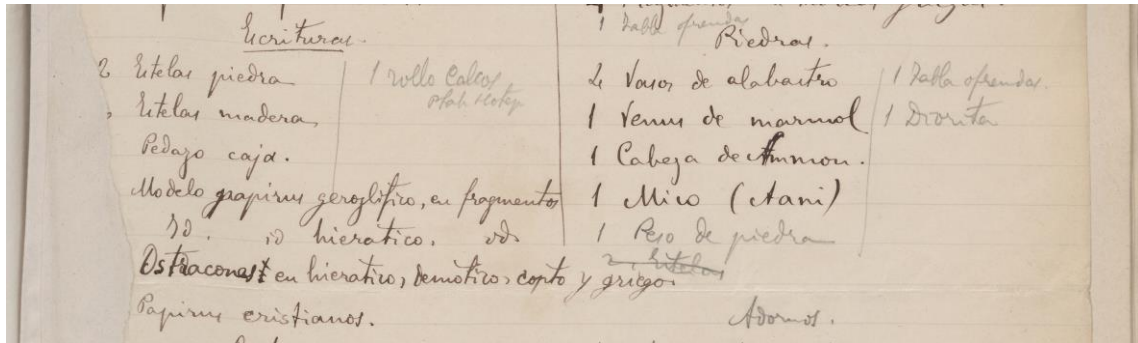 1 Tabla ofrendas
Escrituras.
2 Estelas piedra
Estelas madera,
Pedazo caja.
Modelo papirus geroglifico, en fragmentos
Id. id hieratico.
Ostracones en hieratico, demotico, copto y griego.
Papirus cristianos.
1 rollo Calcos
Ptah Hotep
Piedras.
2 Vasos de alabastro
1 Venus de marmol
1 Cabeza de Ammon.
1 Mico (Aani)
1 Peso de piedra
2 Estelas
1 Tabla ofrendas.
1 Diorita
Adornos.